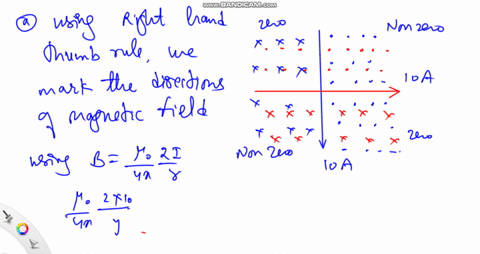 WWW.BANDICAM.COM
(a) using Right hand
thumb rule, we
mark the directions
of magnetic field
using B = μ₀/4π 2I/r
μ₀/4π 2×10/y
zero
Non zero
10 A
zero
Non zero
10 A